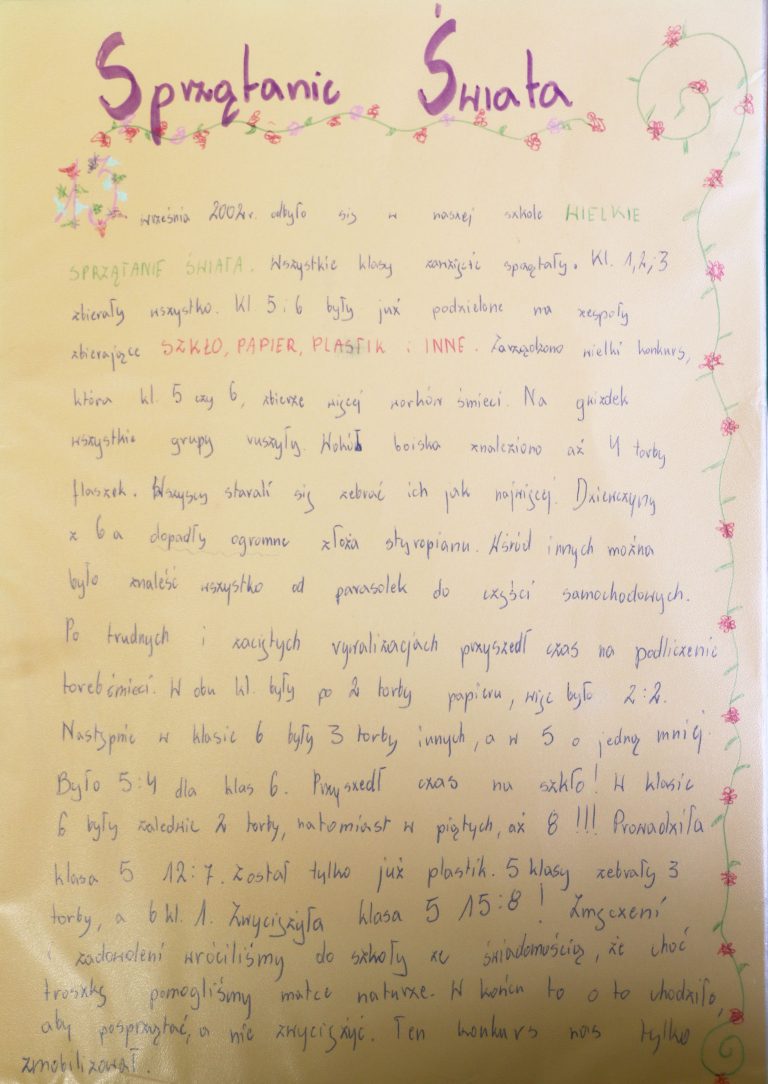 Sprzątanie Świata
13 września 2002r. odbyło się w naszej szkole WIELKIE
SPRZĄTANIE ŚWIATA. Wszystkie klasy zawzięcie sprzątały. Kl. 1,2,i 3
zbierały wszystko. Kl 5 i 6 były już podzielone na zespoły
zbierające SZKŁO, PAPIER, PLASTIK i INNE. Zarządzono wielki konkurs,
która kl. 5 czy 6, zbierze więcej worków śmieci. Na gwizdek
wszystkie grupy ruszyły. Wokół boiska znaleziono aż 4 torby
flaszek. Wszyscy starali się zebrać ich jak najwięcej. Dziewczyny
z 6 a dopadły ogromne złoża styropianu. Wśród innych można
było znaleść wszystko od parasolek do części samochodowych.
Po trudnych i zaciętych rywalizacjach przyszedł czas na podliczenie
toreb śmieci. W obu kl. były po 2 torby papieru, więc było 2:2.
Następnie w klasie 6 były 3 torby innych, a w 5 o jedną mniej.
Było 5:4 dla klas 6. Przyszedł czas na szkło! W klasie
6 były zaledwie 2 torby, natomiast w piątych, aż 8 !!! Prowadziła
klasa 5 12:7. Został tylko już plastik. 5 klasy zebrały 3
torby, a 6 kl. 1. Zwyciężyła klasa 5 15:8 ! Zmęczeni
i zadowoleni wróciliśmy do szkoły ze świadomością, że choć
troszkę pomogliśmy matce naturze. W końcu to o to chodziło,
aby posprzątać, a nie zwyciężyć. Ten konkurs nas tylko
zmobilizował.